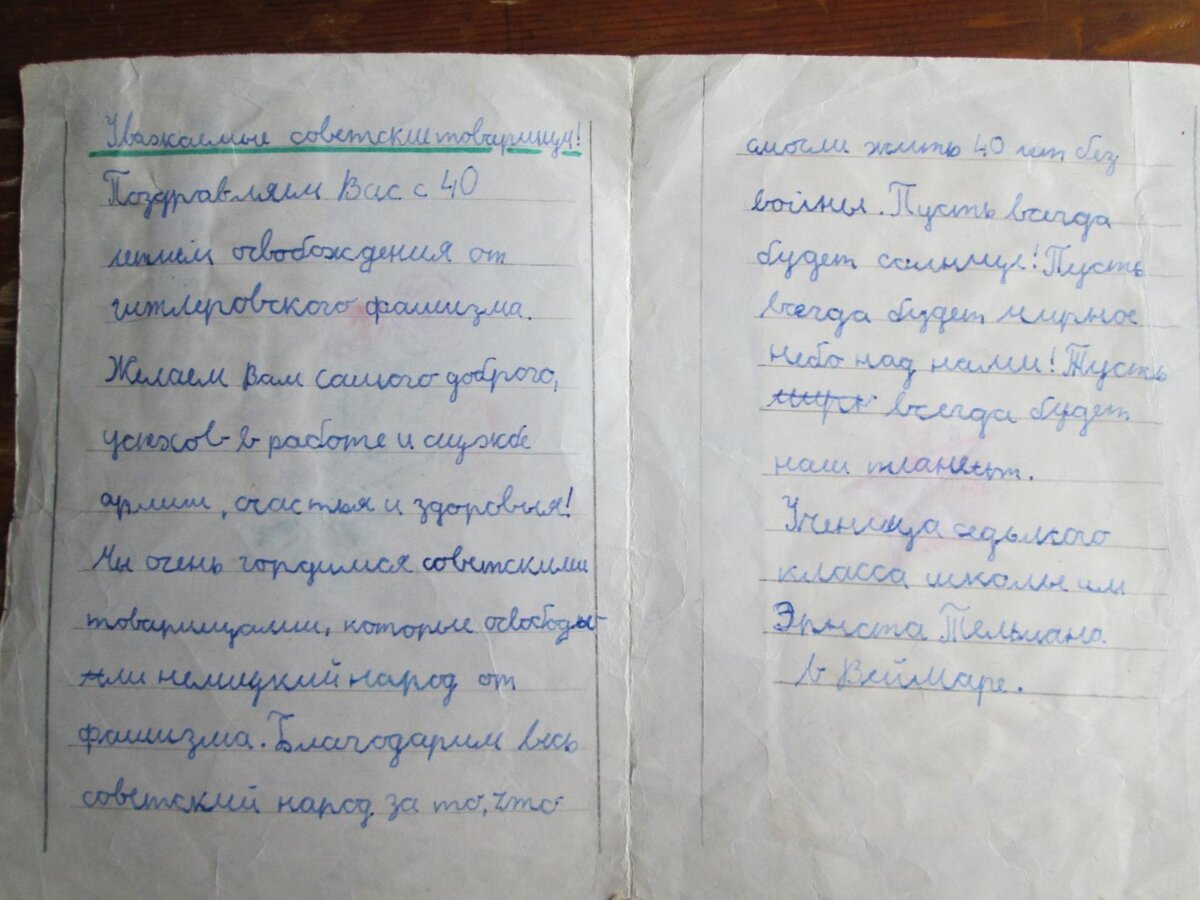 Уважаемые советские товарищи!
Поздравляем Вас с 40
летием освобождения от
гитлеровского фашизма.
Желаем Вам самого доброго,
успехов в работе и службе
армии, счастья и здоровья!
Мы очень гордимся советскими
товарищами, которые освободи-
ли немецкий народ от
фашизма. Благодарим весь
советский народ за то, что
смогли жить 40 лет без
войны. Пусть всегда
будет солнце! Пусть
всегда будет мирное
небо над нами! Пусть
всегда будет
наш планет.
Ученица седьмого
класса школы им
Эрнста Тельмана
в Веймаре.